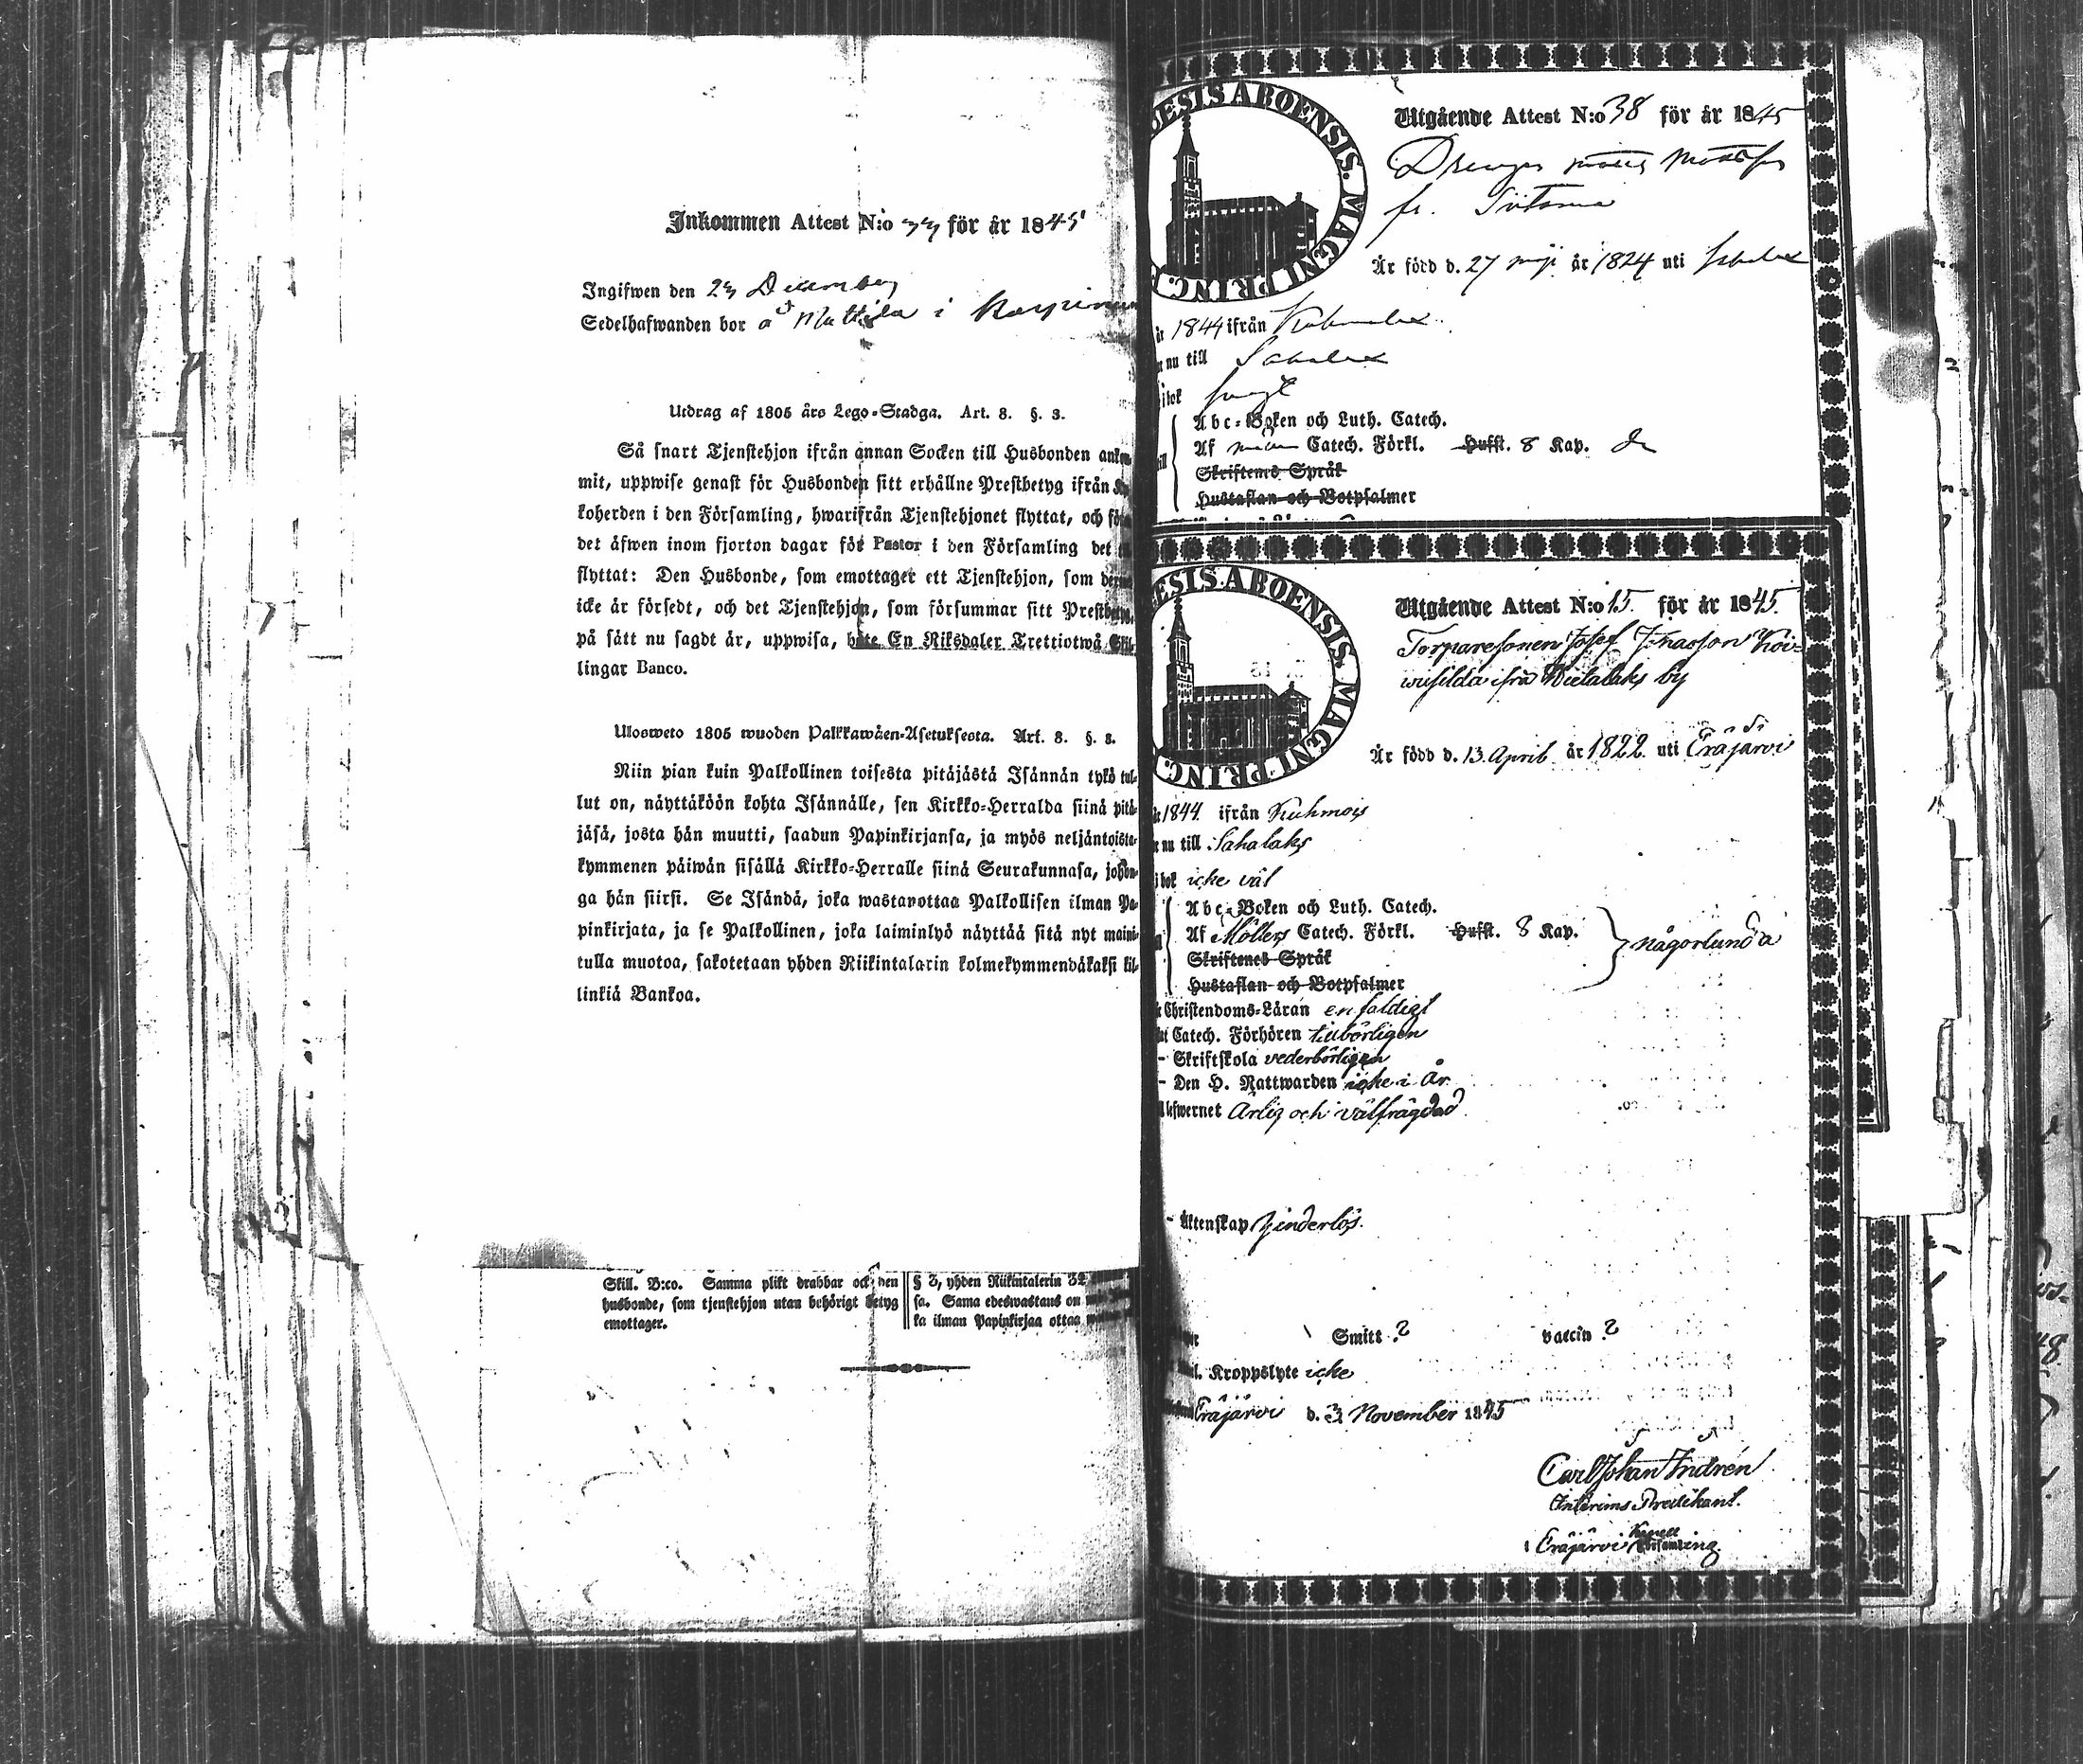 Inkommen Attest N:o för år 1845
Ingifwen den 23 December
Sedelhafwanden bor å Mattila i
Utdrag af 1805 års Lego-Stadga. Art. 8. §. 3.
Så snart Tjenstehjon ifrån annan Socken till Husbonden ankom-
mit, uppwise genast för Husbonden sitt erhållne Prestbetyg ifrån
koherden i den Församling, hwarifrån Tjenstehjonet flyttat, och
det äfwen inom fjorton dagar för Pastor i den Församling det
flyttat: Den Husbonde, som emottager ett Tjenstehjon, som
icke är försedt, och det Tjenstehjon, som försummar sitt Prestbetyg,
på sätt nu sagdt är, uppwisa, böte En Riksdaler Trettiotwå Skil-
lingar Banco.
Ulosweto 1805 wuoden Palkkawäen-Asetuksesta. Art. 8. §. 3.
Niin pian kuin Palkollinen toisesta pitäjästä Isännän tykö tul-
lut on, näyttäköön kohta Isännälle, sen Kirkko-Herralda siinä pitä-
jäsä, josta hän muutti, saadun Papinkirjansa, ja myös neljäntoista-
kymmenen päiwän sisällä Kirkko-Herralle siinä Seurakunnasa, johon-
ga hän siirsi. Se Isändä, joka wastanottaa Palkollisen ilman Pa-
pinkirjata, ja se Palkollinen, joka laiminlyö näyttää sitä nyt maini-
tulla muotoa, sakotetaan yhden Riikintalarin kolmekymmendäkaksi kil-
linkiä Bankoa.
Skill. B:co. Samma plikt drabbar ock den
husbonde, som tjenstehjon utan behörigt betyg
emottager.
§ 3, yhden Riikintalerin 32
sa. Sama edeswastaus on
ka ilman Papinkirjaa ottaa
DESIS ABOENSIS. MAGNI PRINC.
Utgående Attest N:o 38 för år 1845
Drengen Matts Mattsson
fr.
Är född d. 27 maji år 1824 uti Sahalax
1844 ifrån Kuhmalax
nu till Sahalax
bok
Abc-Boken och Luth. Catech.
Af Catech. Förkl. Hufst. 8 Kap.
Skriftenes Språk
Hustaflan och Botpsalmer
ESIS ABOENSIS. MAGNI PRINC.
Utgående Attest N:o 15. för år 1845.
Torparesonen Josef Jonasson Koi-
ifrå by
Är född d. 13. April år 1822 uti Eräjärvi
1844. ifrån Kuhmois
nu till Sahalaks
bok icke väl
Abc-Boken och Luth. Catech.
Af Möllers Catech. Förkl. Hufst. 8 Kap.
någorlunda
Skriftenes Språk
Hustaflan och Botpsalmer
Christendoms-Läran enfaldigt
Catech. Förhören tilbörligen
- Skriftskola vederbörligen
- Den H. Nattwarden icke i År
lefwernet Ärlig och välfrägdad
- Äktenskap hinderlös.
Smitt ? vaccin ?
Kroppslyte icke
Eräjärvi d. 3 November 1845
Carl Johan Indrén
Interims Predikant.
i Eräjärvi Kapell
Församling